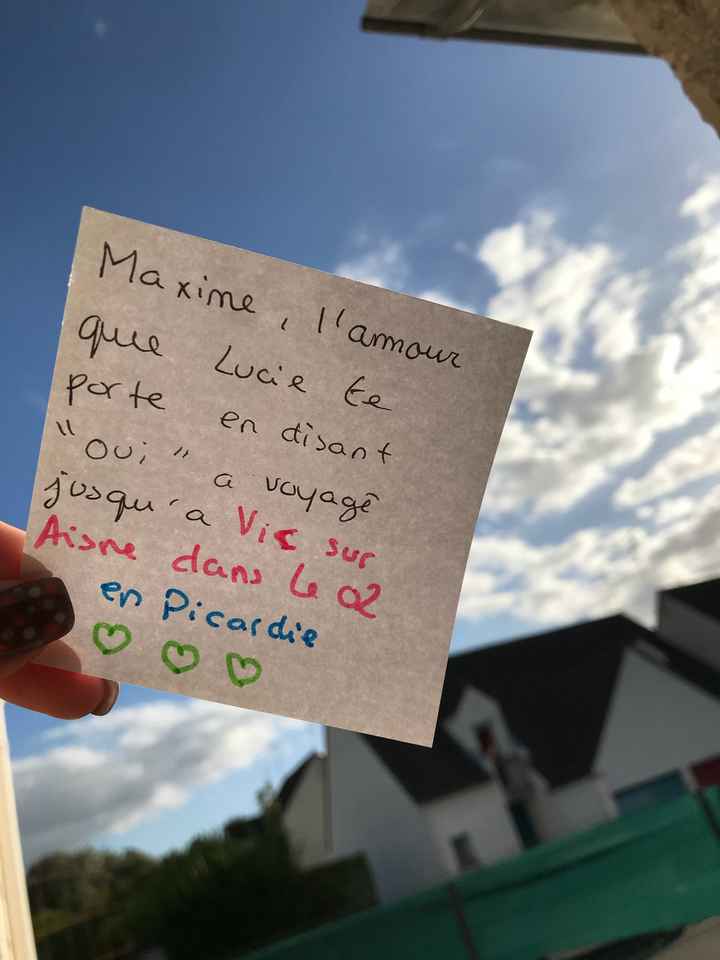 Maxime, l'amour
que Lucie te
porte en disant
"oui" a voyagé
jusqu'a Vic sur
Aisne dans le 02
en Picardie